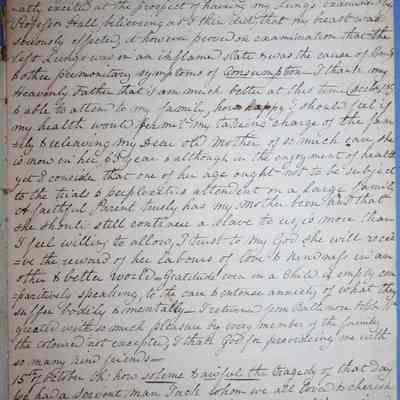 naly, excited at the prospect of having my Lungs examined by
Professor Hall, believing as I then did, that my breast was
seriously effected, it however proved on examination that the
left Lung was in an inflamed state & was the cause of
& other premonitory symptoms of Consumption. I thank my
Heavenly Father that I am much better at this time
& able to attend to my family, how happy I should feel if
my health would permit my taking charge of the fam
ily & relieving my dear old Mother of so much care, she
is now in her year & although in the enjoyment of health
yet I consider that one of her age ought not to be subject
to the trials & perplexities attendant on a Large Family
A faithful Parent truly has my Mother been, and that
she should still continue a slave to us, is more than
I feel willing to allow, I trust to my God she will recei
ve the reward of her labours of love & kindness in an
other & better World — Gratitude even in a Child is empty com
paratively speaking, to the care & intense anxiety of what they
suffer bodily & mentally — I returned from Baltimore
greeted with so much pleasure by every member of the family,
the coloured not excepted, I thank God for providing me with
so many kind friends —
15th of October Oh! how solemn & awful the tragedy of that day
we had a servant man Jack whom we all loved & cherish